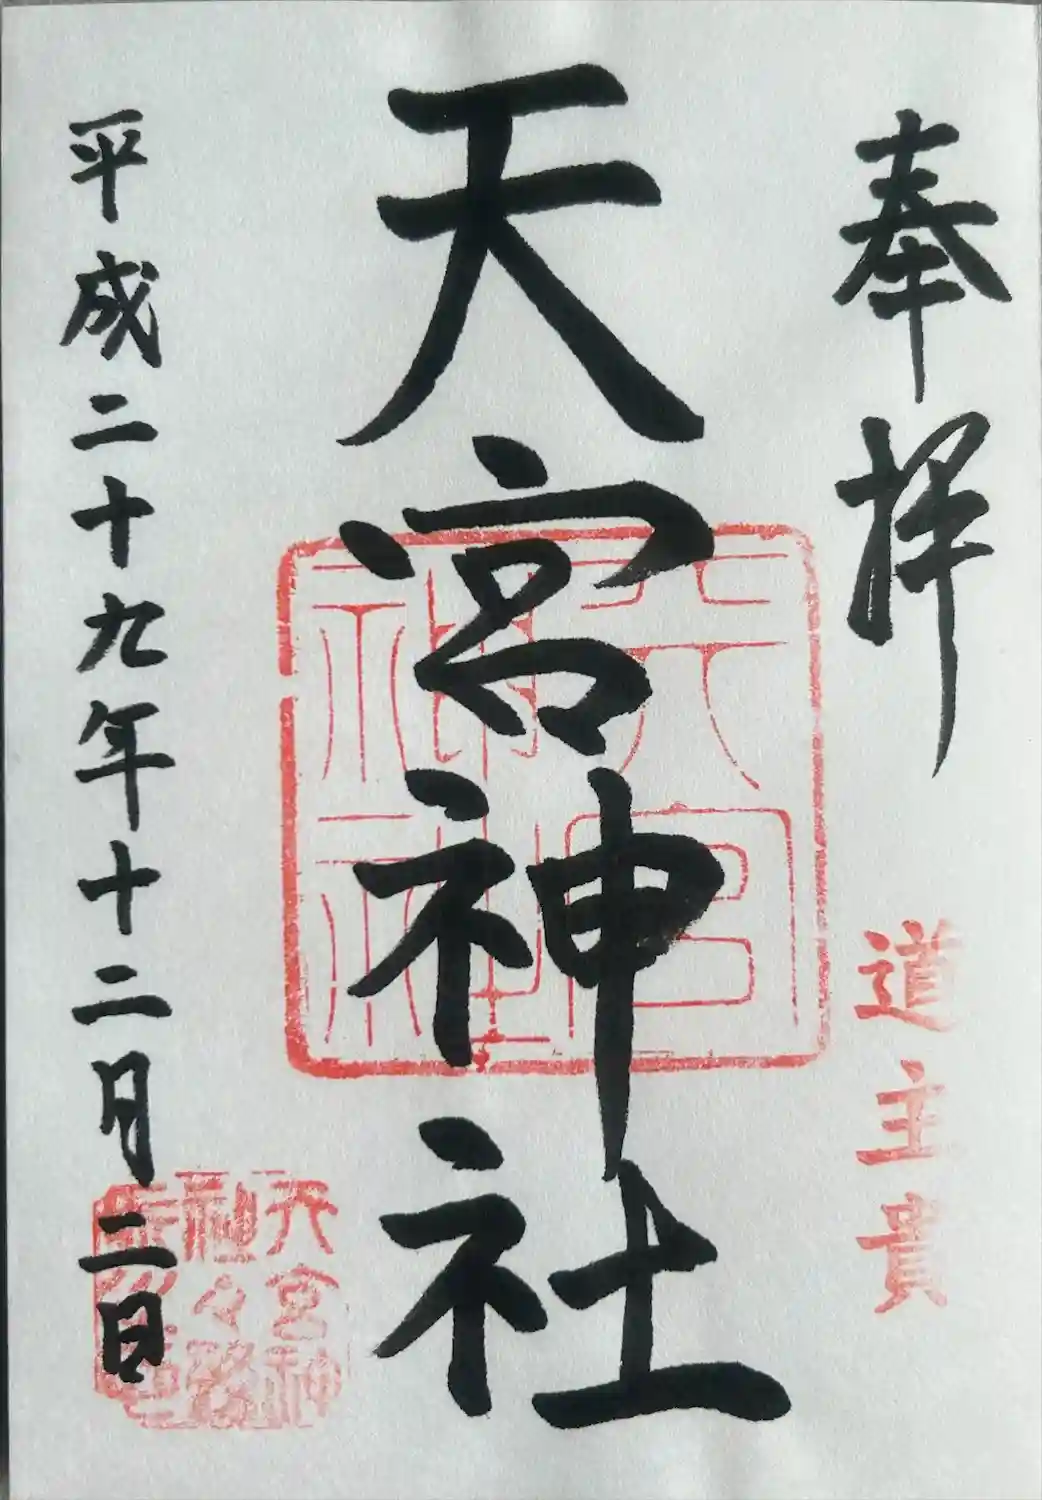 奉拝
道主貴
天宮神社
天宮神社
平成二十九年十二月二日
天宮神
社々務